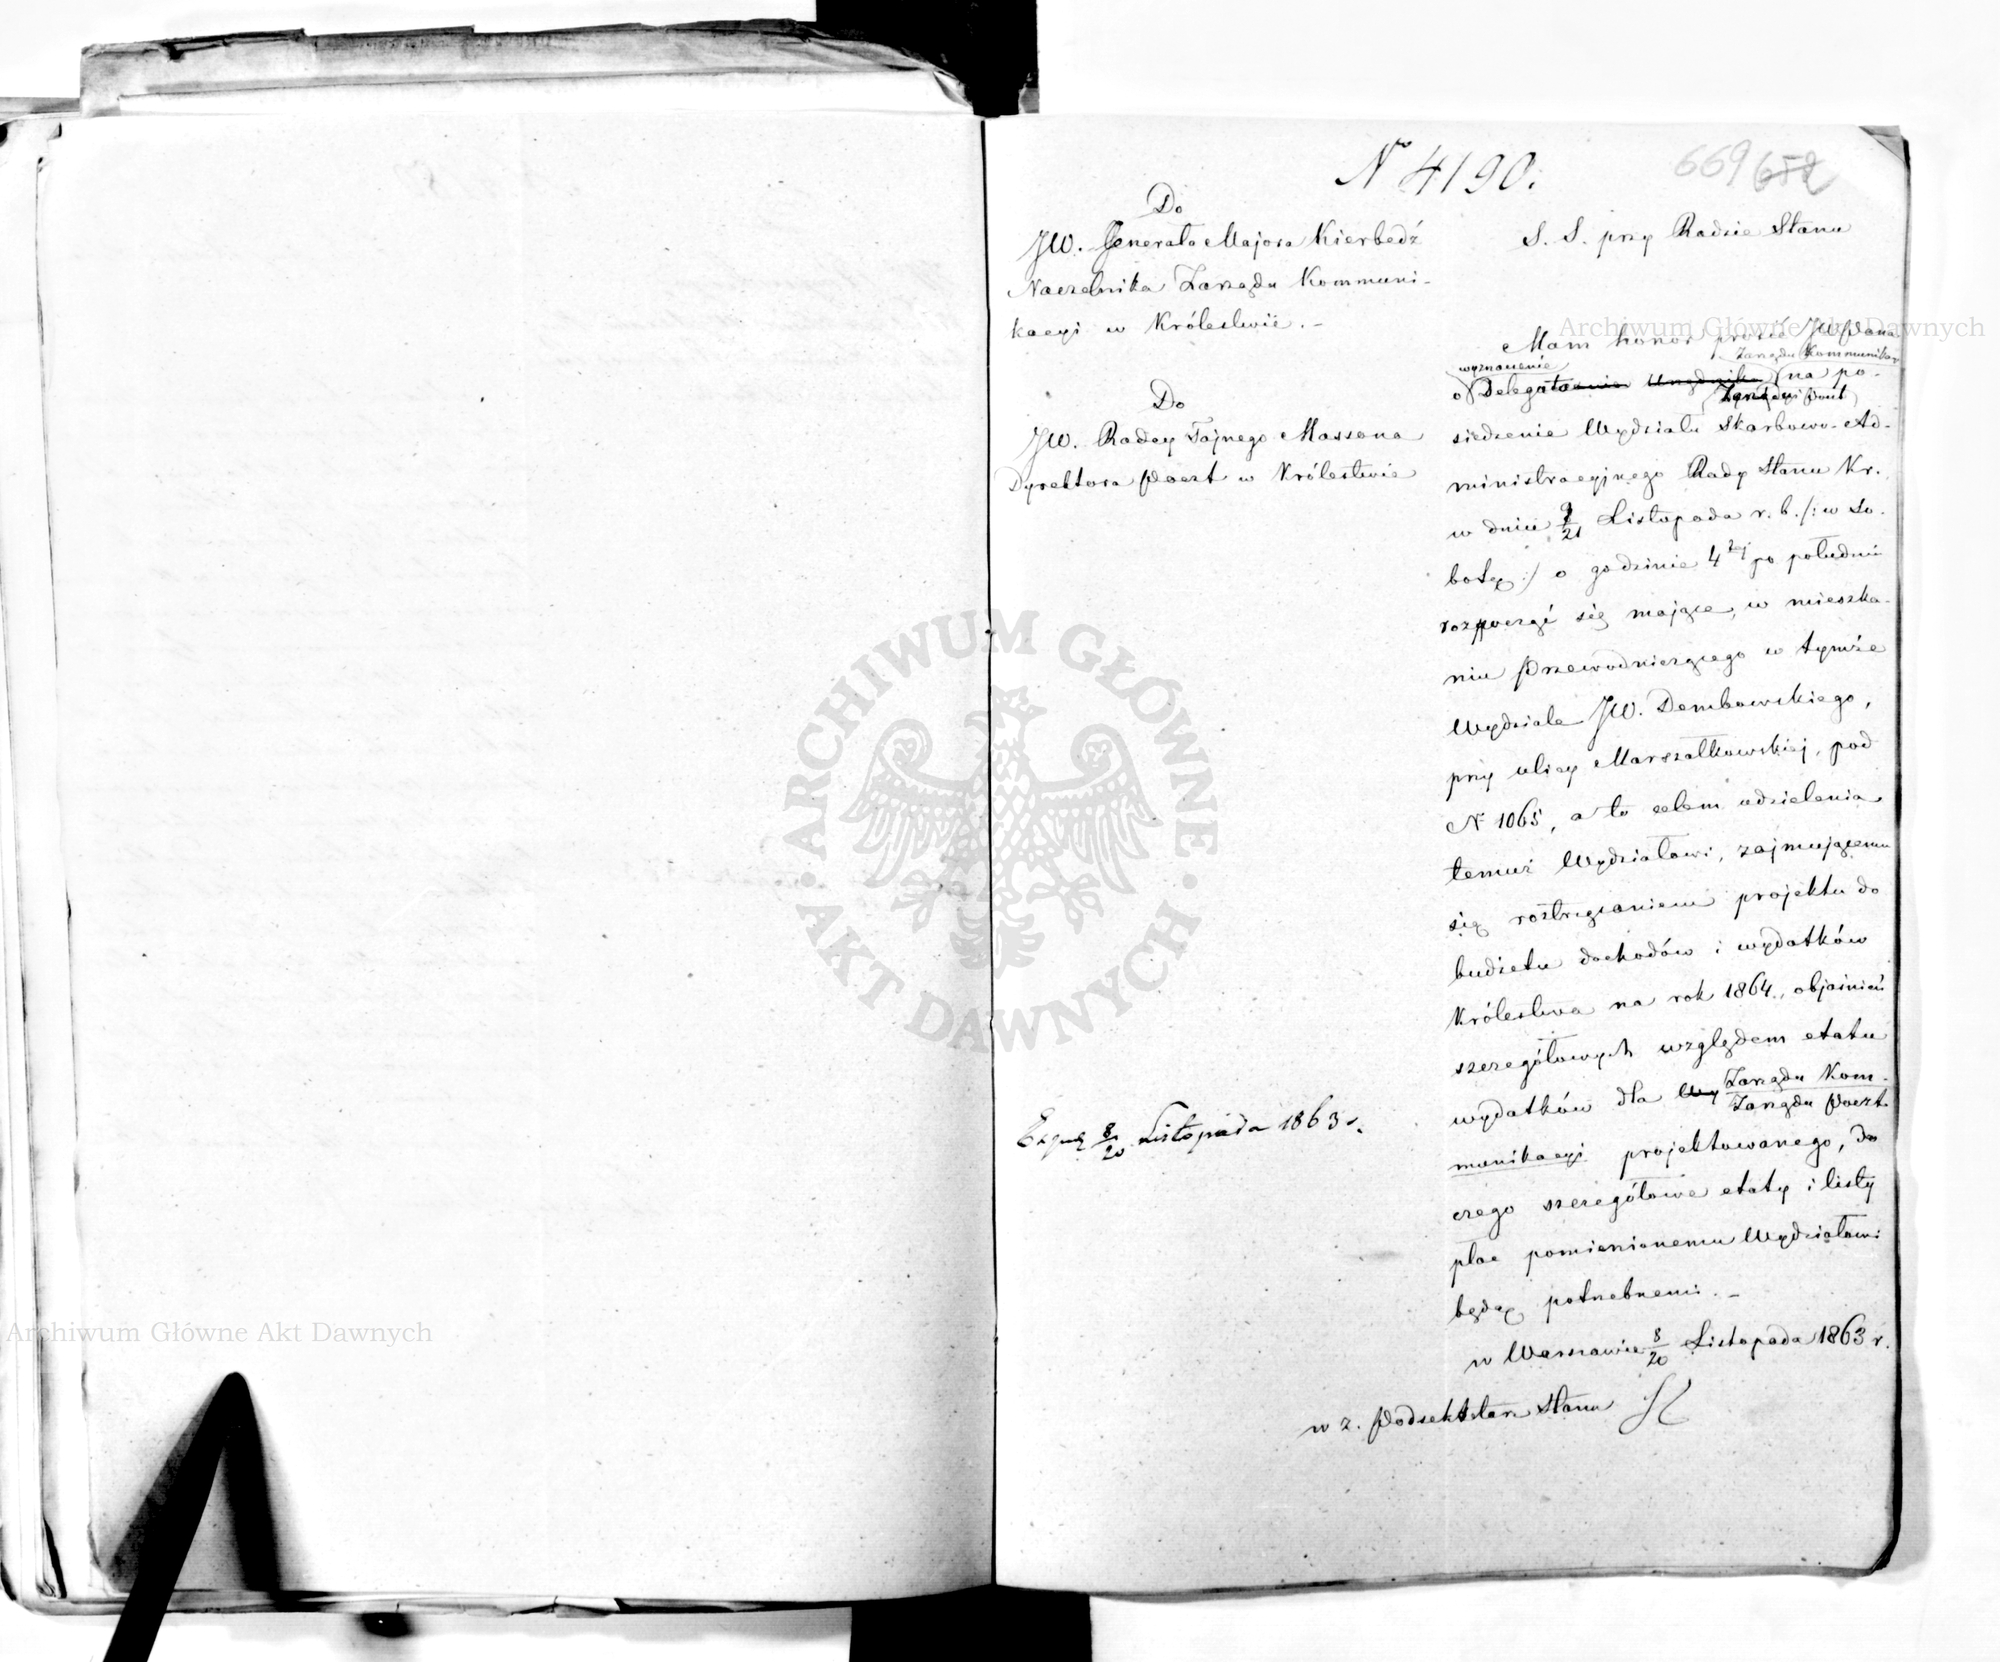 No 4190.
669 652
Do
JW. Jenerała Majora Kierbedź
Naczelnika Zarządu Kommuni-
kacyi w Królestwie. –
Do
JW. Radcy Tajnego Massona
Dyrektora Poczt w Królestwie
Exped. 8/20 Listopada 1863 r.
S. S. przy Radzie Stanu
Mam honor prosić JWPana
wyznaczenie Zarządu Kommunikacyi
o Delegatoanie Urzędnika na po-
Zarządu Poczt
siedzenie Wydziału Skarbowo-Ad-
ministracyjnego Rady Stanu Kr.
w dniu 9/21 Listopada r. b. /: w So-
botę :/ o godzinie 4tej po południu
rozpocząć się mające, w mieszka-
niu Przewodniczącego w tymże
Wydziale JW. Dembowskiego,
przy ulicy Marszałkowskiej, pod
N 1065, a to celem udzielenia
temuż Wydziałowi, zajmującemu
się roztrząsaniem projektu do
budżetu dochodów i wydatków
Królestwa na rok 1864., objaśnień
szczegółowych względem etatu
wydatków dla Wy Zarządu Kom-
Zarządu Poczt
munikacyi projektowanego, do
czego szczegółowe etaty i listy
płac pomienionemu Wydziałowi
będą potrzebnemi. –
w Warszawie 8/20 Listopada 1863 r.
w z. Podsekretarz Stanu
Archiwum Główne Akt Dawnych
ARCHIWUM GŁÓWNE · AKT DAWNYCH ·
Archiwum Główne Akt Dawnych